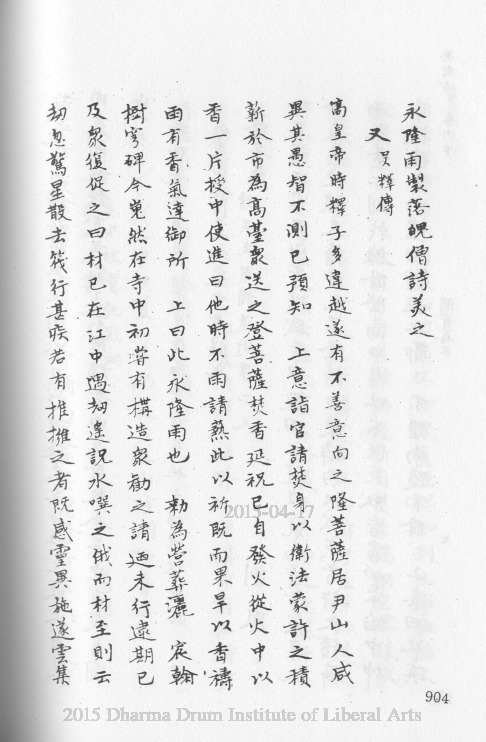 永隆雨製落魄僧詩美之
又 吳釋傳
高皇帝時釋子多違越遂有不善意向之隆菩薩居尹山人咸
異其愚智不測已預知 上意詣官請焚身以衛法蒙許之積
薪於市為高臺衆送之登菩薩焚香延祝已自發火從火中以
香一片授中使進曰他時不雨請爇此以祈既而果旱以香禱
雨有香氣達御所 上曰此永隆雨也 勅為營葬灑 宸翰
樹穹碑今嵬然在寺中初嘗有構造衆勸之請迺未行逮期已
及衆復促之曰材已在江中遇刼遙説水噀之俄而材至則云
刼忽驚星散去筏行甚疾若有推擁之者既感靈異施遂雲集
904
2015-04-17
2015 Dharma Drum Institute of Liberal Arts